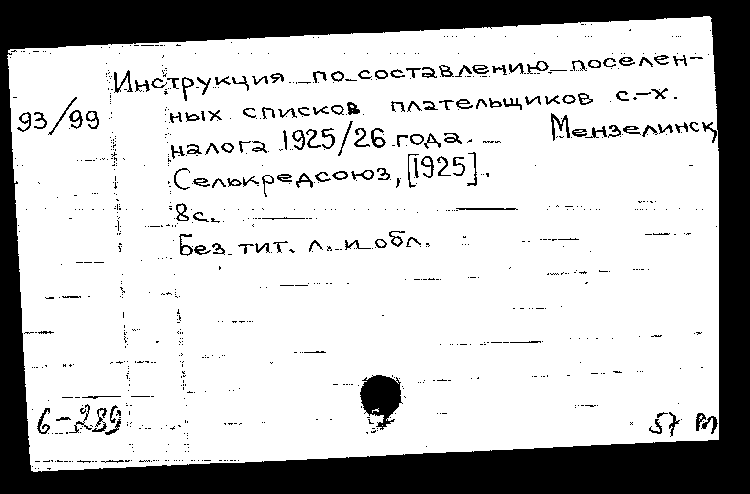 Инструкция по составлению поселен-
93/99 ных списков плательщиков с.-х.
налога 1925/26 года. — Мензелинск,
Селькредсоюз, [1925].
8с.
Без тит. л. и обл.
6-289
57